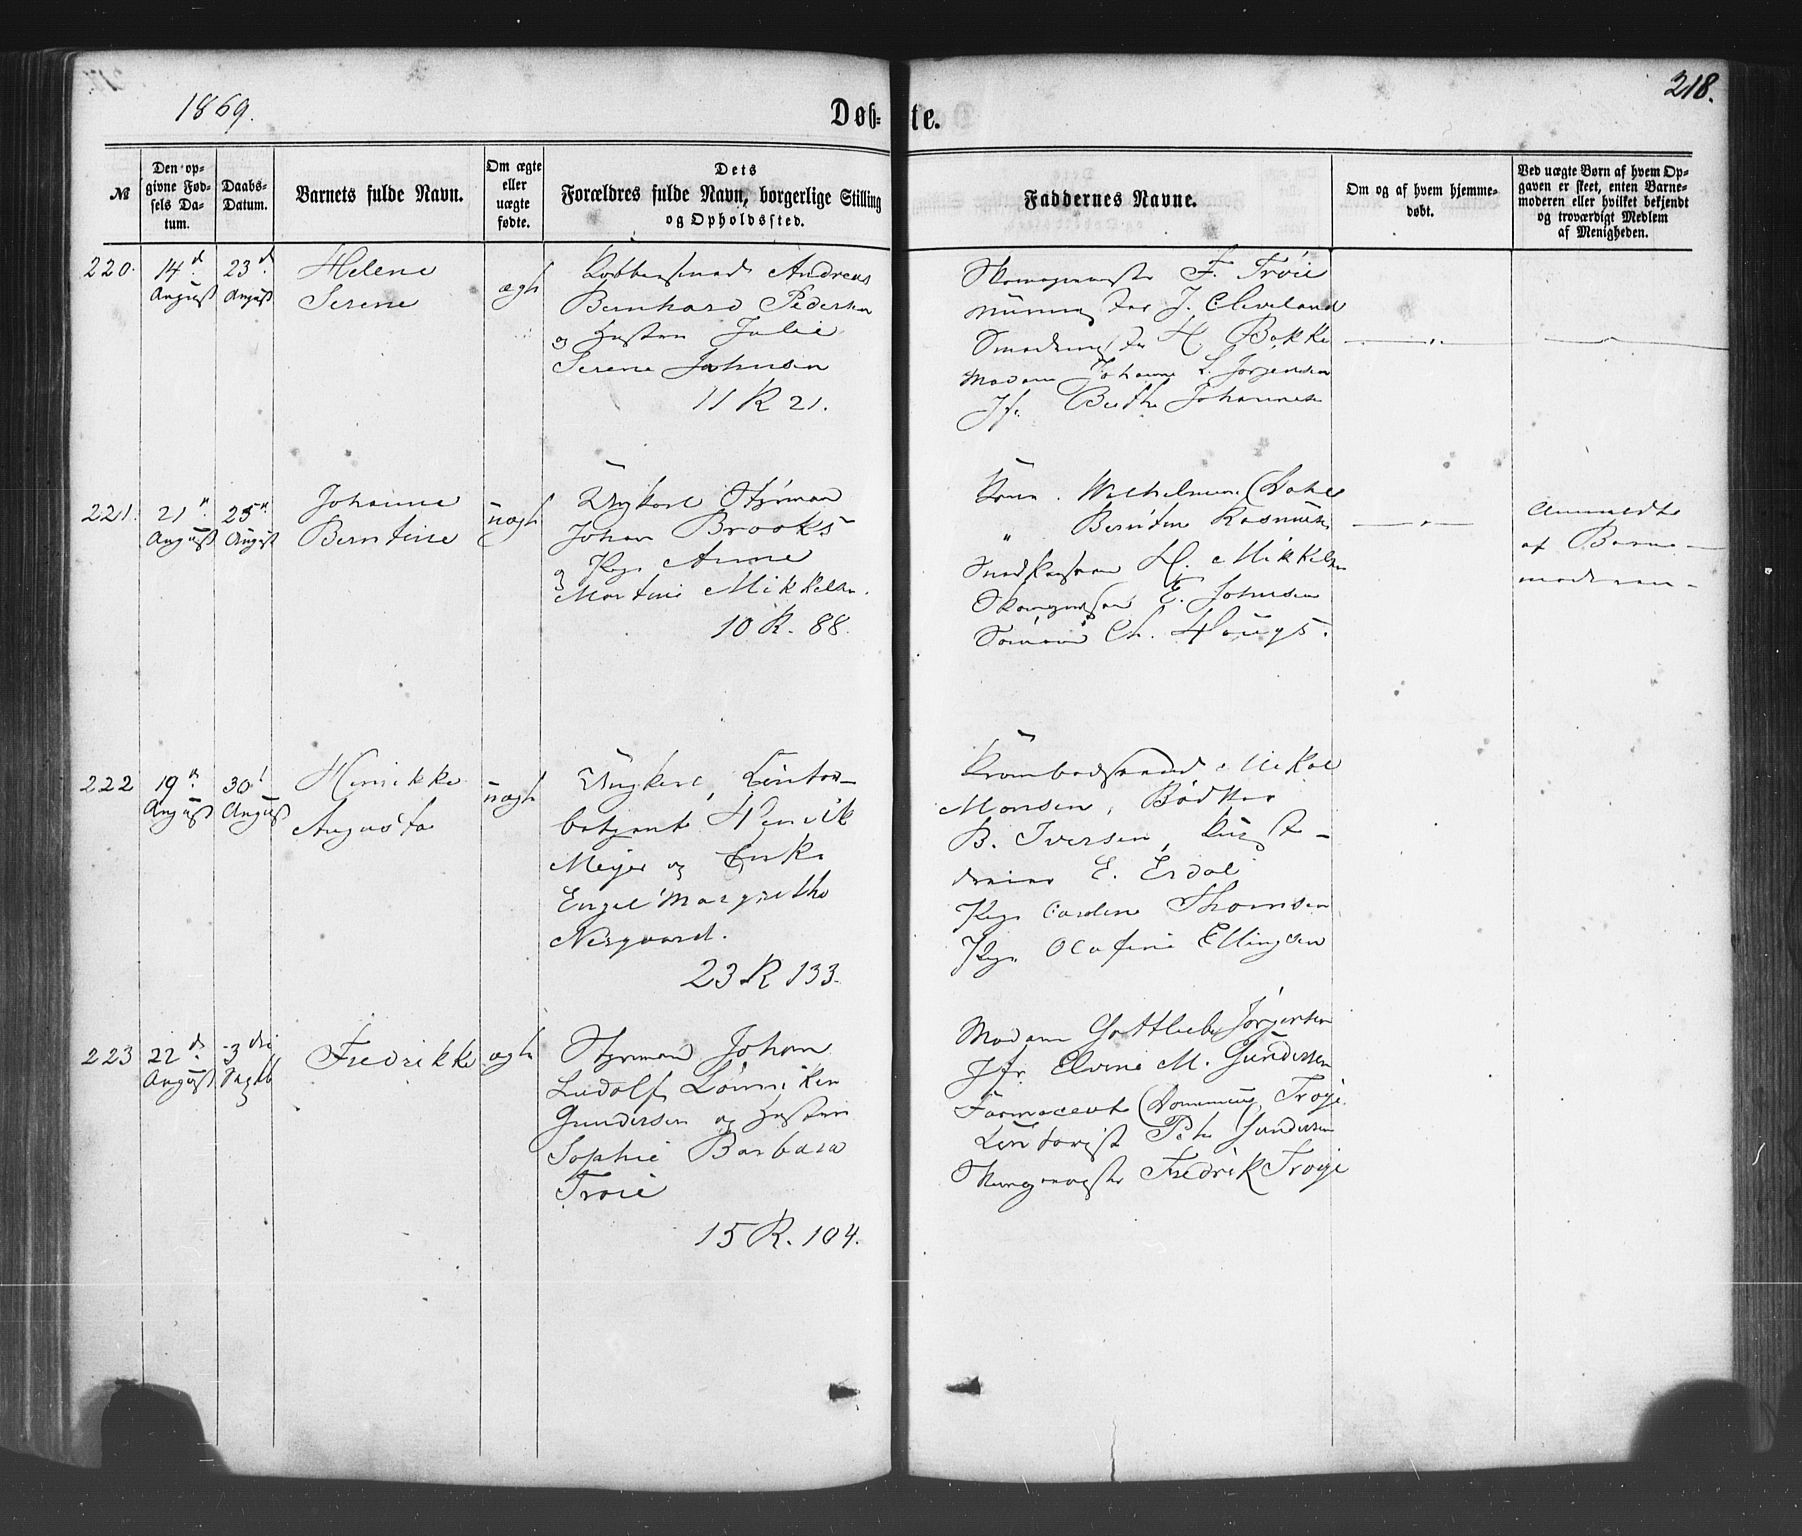 1869.
Døb-
te.
218.
№
Den op-
givne Fød-
sels Da-
tum.
Daabs-
Datum.
Barnets fulde Navn.
Om ægte
eller
uægte
fødte.
Dets
Forældres fulde Navn, borgerlige Stilling
og Opholdssted.
Faddernes Navne.
Om og af hvem hjemme-
døbt.
Ved uægte Børn af hvem Op-
gaven er skeet, enten Barne-
moderen eller hvilket bekjendt
og troværdigt Medlem
af Menigheden.
220.
14d
August
23d
August
Helene
Serene
ægte
Kobbersmed Andreas
Bernhard Pedersen
og Hustru Julie
Serene Johnsen
11 R 21.
F. Trøie
J. Cleveland
H. Bakke
Madam Johanne L. Jørgensen
Jfr. Johannesen
221.
21n
August
25n
August
Johanne
Berntine
uægte
Ungkarl Styrmand
Johan Brooks
og Pige Anne
Martine Mikkelsen.
10 R. 88.
Kone Wilhelmine Dahl
" Berntine Rasmusen
H. Mikkelsen
E. Johnsen
Ch. Haugs.
Anmeldt
af Barne-
moderen.
222
19n
August
30d
August
Henrikke
Augusta
uægte
Ungkarl, Contor-
betjent Henrik
Meyer og Enke
Engel Margrethe
Nesgaard.
23 R 133.
Mikal
Monsen, Bødker
B. Iversen, Kunst-
dreier E. Erdal
Pige Caroline Thomsen
Pige Olafine Ellingsen
223
22d
August
3die
Septb
Fredrikke
ægte
Styrmand Johan
Ludolf Lønniken
Gundersen og Hustru
Sophie Barbara
Troie
15 R. 104.
Madam Gottliebe Jørgensen
Jfr. Elvine M. Gundersen
Farmaceut Dominicus Troye
Contorist Peter Gundersen
Fredrik Troye